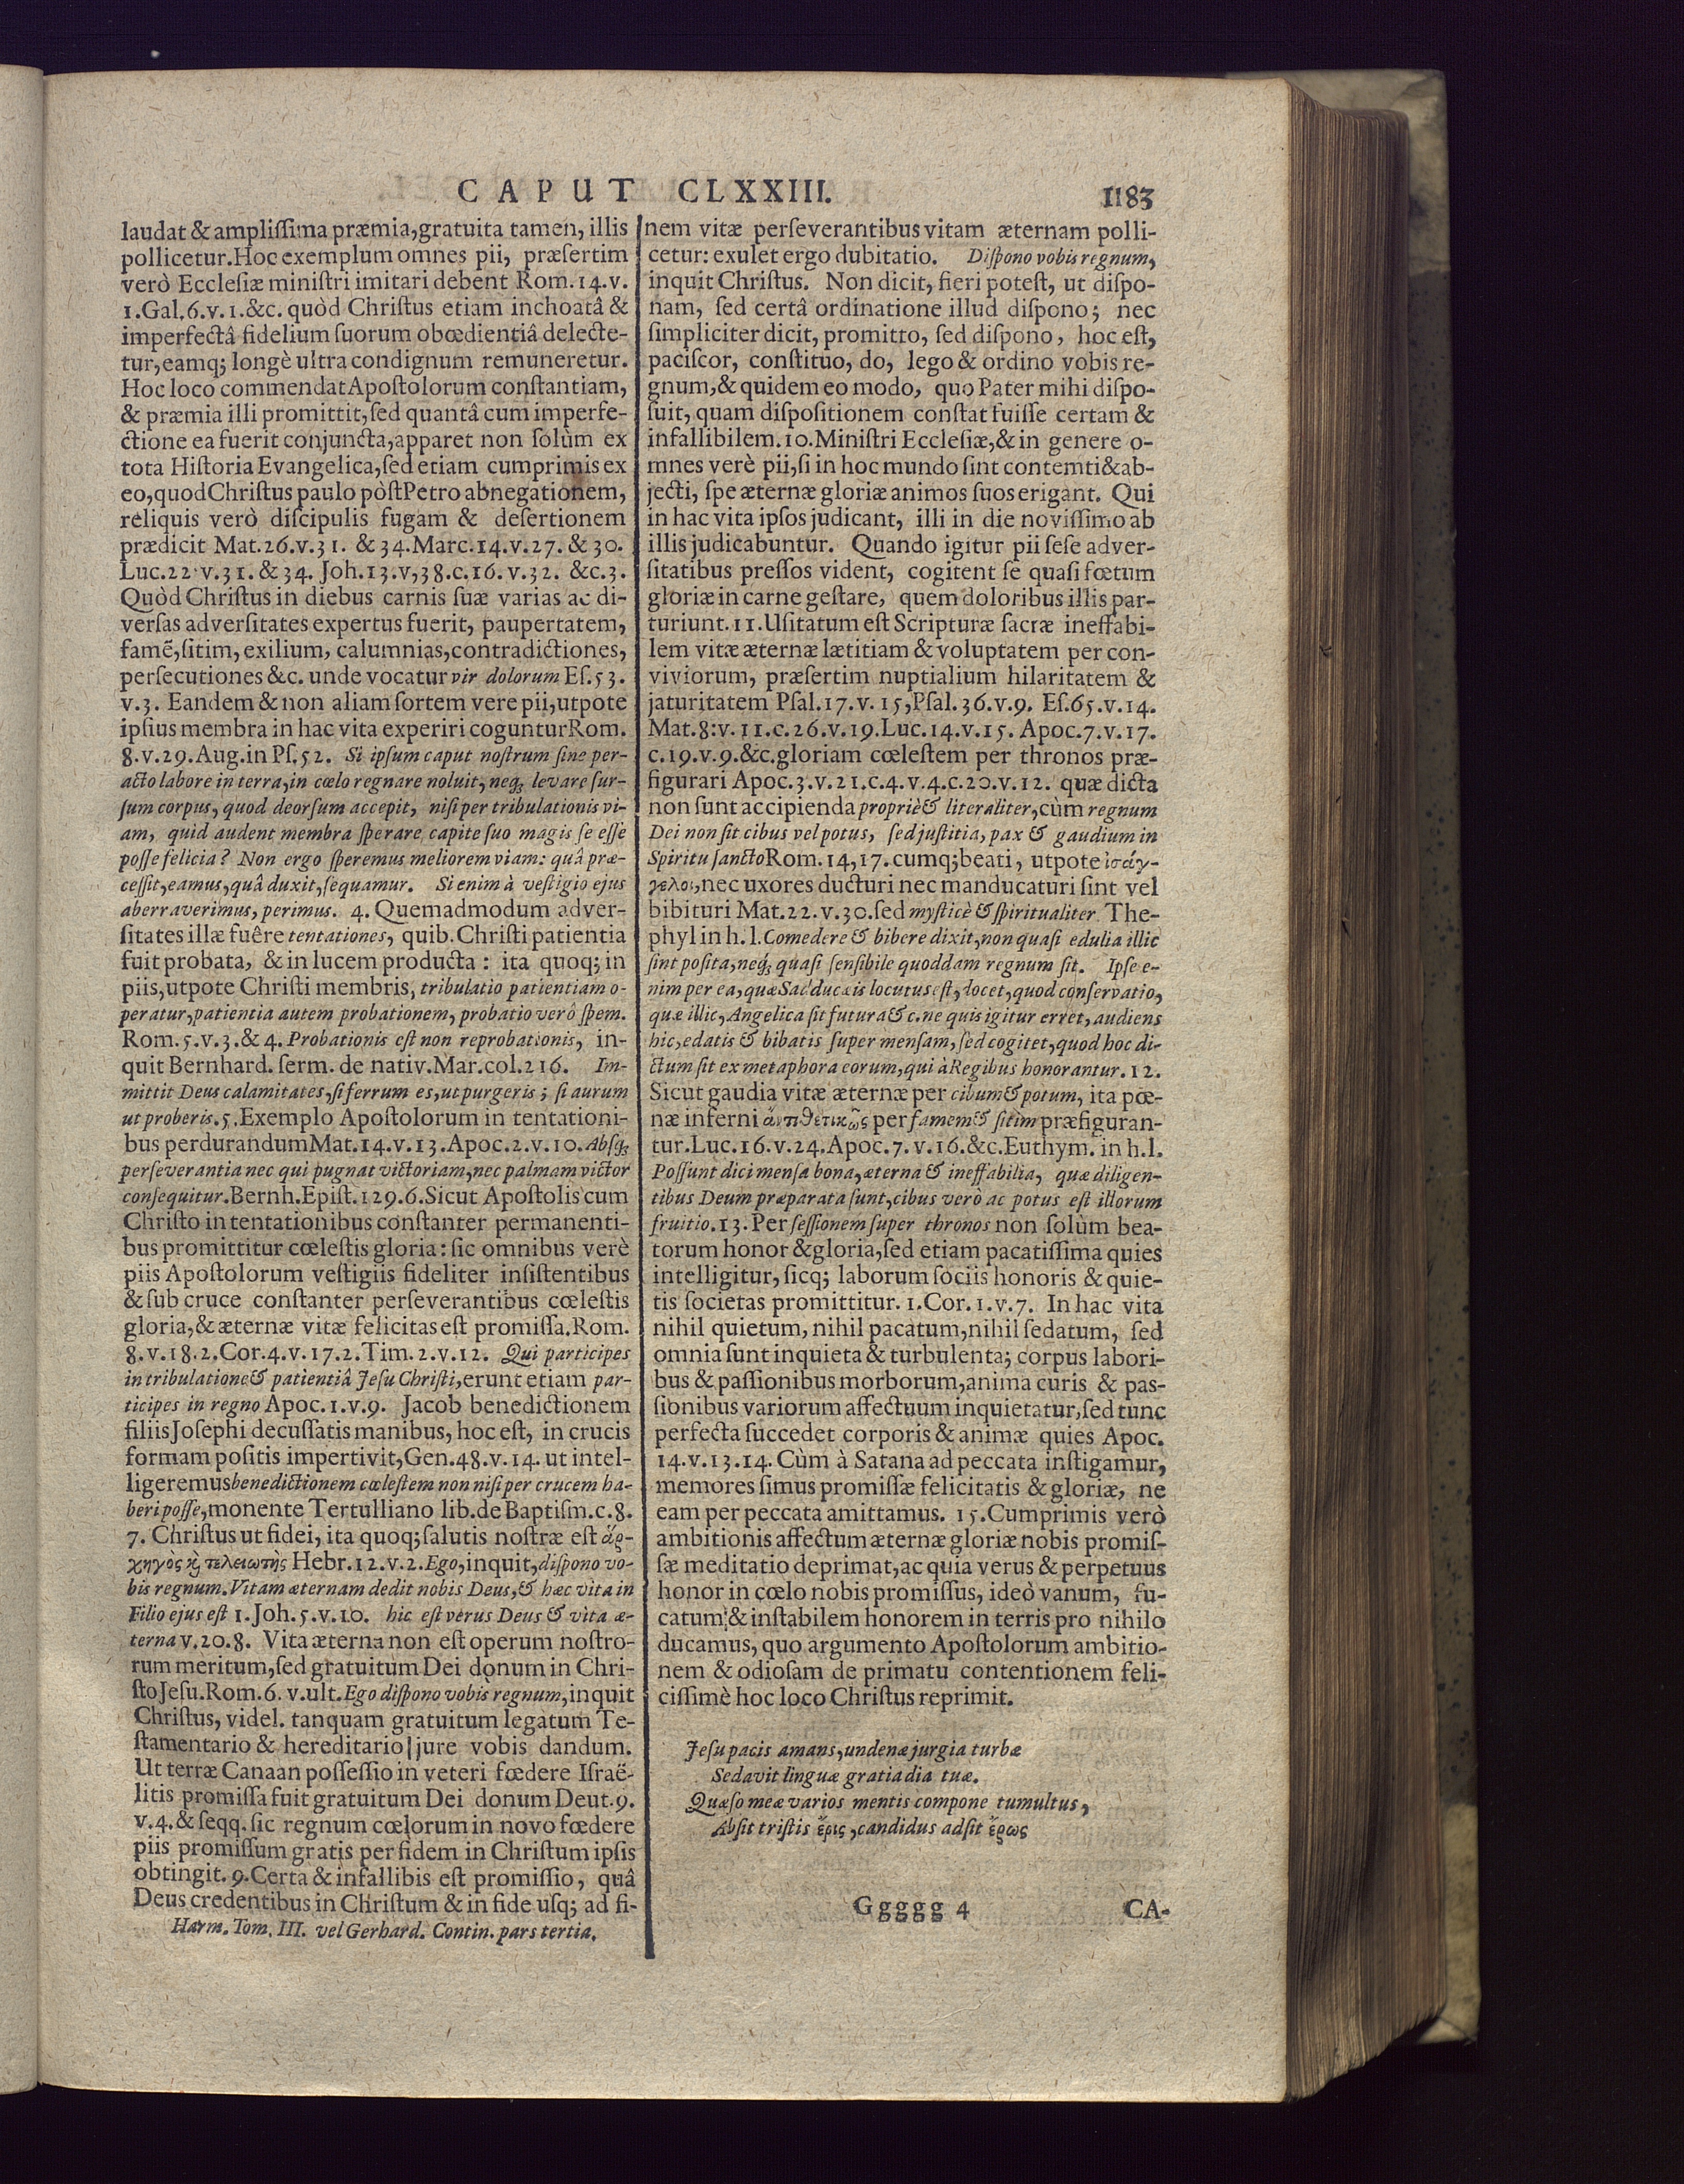 CAPUT CLXXIII. 1183
laudat & ampliſſima præmia, gratuita tamen, illis
pollicetur. Hoc exemplum omnes pii, præſertim
verò Eccleſiæ miniſtri imitari debent Rom. 14. v.
1. Gal. 6. v. 1. &c. quòd Chriſtus etiam inchoatâ &
imperfectâ fidelium ſuorum obœdientiâ delecte-
tur, eamq; longè ultra condignum remuneretur.
Hoc loco commendat Apoſtolorum conſtantiam,
& præmia illi promittit, ſed quantâ cum imperfe-
ctione ea fuerit conjuncta, apparet non ſolùm ex
tota Hiſtoria Evangelica, ſed etiam cumprimis ex
eo, quod Chriſtus paulo pòſt Petro abnegationem,
reliquis verò diſcipulis fugam & deſertionem
prædicit Mat. 26. v. 31. & 34. Marc. 14. v. 27. & 30.
Luc. 22. v. 31. & 34. Joh. 13. v, 38. c. 16. v. 32. &c. 3.
Quòd Chriſtus in diebus carnis ſuæ varias ac di-
verſas adverſitates expertus fuerit, paupertatem,
famẽ, ſitim, exilium, calumnias, contradictiones,
perſecutiones &c. unde vocatur vir dolorum Eſ. 53.
v. 3. Eandem & non aliam ſortem vere pii, utpote
ipſius membra in hac vita experiri coguntur Rom.
8. v. 29. Aug. in Pſ. 52. Si ipſum caput noſtrum ſine per-
acto labore in terra, in cœlo regnare noluit, neq; levare ſur-
ſum corpus, quod deorſum accepit, niſi per tribulationis vi-
am, quid audent membra ſperare, capite ſuo magis ſe eſſe
poſſe felicia? Non ergo ſperemus meliorem viam: quâ præ-
ceſſit, eamus, quâ duxit, ſequamur. Si enim à veſtigio ejus
aberraverimus, perimus. 4. Quemadmodum adver-
ſitates illæ fuêre tentationes, quib. Chriſti patientia
fuit probata, & in lucem producta: ita quoq; in
piis, utpote Chriſti membris, tribulatio patientiam o-
peratur, patientia autem probationem, probatio verô ſpem.
Rom. 5. v. 3. & 4. Probationis eſt non reprobationis, in-
quit Bernhard. ſerm. de nativ. Mar. col. 216. Im-
mittit Deus calamitates, ſi ferrum es, ut purgeris; ſi aurum
ut proberis. 5. Exemplo Apoſtolorum in tentationi-
bus perdurandum Mat. 14. v. 13. Apoc. 2. v. 10. Abſq;
perſeverantia nec qui pugnat victoriam, nec palmam victor
conſequitur. Bernh. Epiſt. 129. 6. Sicut Apoſtolis cum
Chriſto in tentationibus conſtanter permanenti-
bus promittitur cœleſtis gloria: ſic omnibus verè
piis Apoſtolorum veſtigiis fideliter inſiſtentibus
& ſub cruce conſtanter perſeverantibus cœleſtis
gloria, & æternæ vitæ felicitas eſt promiſſa. Rom.
8. v. 18. 2. Cor. 4. v. 17. 2. Tim. 2. v. 12. Qui participes
in tribulatione & patientiâ Jeſu Chriſti, erunt etiam par-
ticipes in regno Apoc. 1. v. 9. Jacob benedictionem
filiis Joſephi decuſſatis manibus, hoc eſt, in crucis
formam poſitis impertivit, Gen. 48. v. 14. ut intel-
ligeremus benedictionem cœleſtem non niſi per crucem ha-
beri poſſe, monente Tertulliano lib. de Baptiſm. c. 8.
7. Chriſtus ut fidei, ita quoq; ſalutis noſtræ eſt ἀρ-
χηγὸς καὶ τελειωτὴς Hebr. 12. v. 2. Ego, inquit, diſpono vo-
bis regnum. Vitam æternam dedit nobis Deus, & hæc vita in
Filio ejus eſt 1. Joh. 5. v. 10. hic eſt verus Deus & vita æ-
terna v. 20. 8. Vita æterna non eſt operum noſtro-
rum meritum, ſed gratuitum Dei donum in Chri-
ſto Jeſu. Rom. 6. v. ult. Ego diſpono vobis regnum, inquit
Chriſtus, videl. tanquam gratuitum legatum Te-
ſtamentario & hereditario jure vobis dandum.
Ut terræ Canaan poſſeſſio in veteri fœdere Iſraë-
litis promiſſa fuit gratuitum Dei donum Deut. 9.
v. 4. & ſeqq. ſic regnum cœlorum in novo fœdere
piis promiſſum gratis per fidem in Chriſtum ipſis
obtingit. 9. Certa & infallibis eſt promiſſio, quâ
Deus credentibus in Chriſtum & in fide uſq; ad fi-
Harm. Tom. III. vel Gerhard. Contin. pars tertia.
nem vitæ perſeverantibus vitam æternam polli-
cetur: exulet ergo dubitatio. Diſpono vobis regnum,
inquit Chriſtus. Non dicit, fieri poteſt, ut diſpo-
nam, ſed certâ ordinatione illud diſpono; nec
ſimpliciter dicit, promitto, ſed diſpono, hoc eſt,
paciſcor, conſtituo, do, lego & ordino vobis re-
gnum, & quidem eo modo, quo Pater mihi diſpo-
ſuit, quam diſpoſitionem conſtat fuiſſe certam &
infallibilem. 10. Miniſtri Eccleſiæ, & in genere o-
mnes verè pii, ſi in hoc mundo ſint contemti & ab-
jecti, ſpe æternæ gloriæ animos ſuos erigant. Qui
in hac vita ipſos judicant, illi in die noviſſimo ab
illis judicabuntur. Quando igitur pii ſeſe adver-
ſitatibus preſſos vident, cogitent ſe quaſi fœtum
gloriæ in carne geſtare, quem doloribus illis par-
turiunt. 11. Uſitatum eſt Scripturæ ſacræ ineffabi-
lem vitæ æternæ lætitiam & voluptatem per con-
viviorum, præſertim nuptialium hilaritatem &
jaturitatem Pſal. 17. v. 15, Pſal. 36. v. 9. Eſ. 65. v. 14.
Mat. 8: v. 11. c. 26. v. 19. Luc. 14. v. 15. Apoc. 7. v. 17.
c. 19. v. 9. &c. gloriam cœleſtem per thronos præ-
figurari Apoc. 3. v. 21. c. 4. v. 4. c. 20. v. 12. quæ dicta
non ſunt accipienda propriè & literaliter, cùm regnum
Dei non ſit cibus vel potus, ſed juſtitia, pax & gaudium in
Spiritu ſancto Rom. 14, 17. cumq; beati, utpote ἰσάγ-
γελοι, nec uxores ducturi nec manducaturi ſint vel
bibituri Mat. 22. v. 30. ſed myſticè & ſpiritualiter. The-
phyl in h. l. Comedere & bibere dixit, non quaſi edulia illic
ſint poſita, neq; quaſi ſenſibile quoddam regnum ſit. Ipſe e-
nim per ea, quæ Sadducæis locutus eſt, docet, quod conſervatio,
quæ illic, Angelica ſit futura & c. ne quis igitur erret, audiens
hic, edatis & bibatis ſuper menſam, ſed cogitet, quod hoc di-
ctum ſit ex metaphora eorum, qui à Regibus honorantur. 12.
Sicut gaudia vitæ æternæ per cibum & potum, ita pœ-
næ inferni ἀντιθετικῶς per famem & ſitim præfiguran-
tur. Luc. 16. v. 24. Apoc. 7. v. 16. &c. Euthym. in h. l.
Poſſunt dici menſa bona, æterna & ineffabilia, quæ diligen-
tibus Deum præparata ſunt, cibus verò ac potus eſt illorum
fruitio. 13. Per ſeſſionem ſuper thronos non ſolùm bea-
torum honor & gloria, ſed etiam pacatiſſima quies
intelligitur, ſicq; laborum ſociis honoris & quie-
tis ſocietas promittitur. 1. Cor. 1. v. 7. In hac vita
nihil quietum, nihil pacatum, nihil ſedatum, ſed
omnia ſunt inquieta & turbulenta; corpus labori-
bus & paſſionibus morborum, anima curis & paſ-
ſionibus variorum affectuum inquietatur, ſed tunc
perfecta ſuccedet corporis & animæ quies Apoc.
14. v. 13. 14. Cùm à Satana ad peccata inſtigamur,
memores ſimus promiſſæ felicitatis & gloriæ, ne
eam per peccata amittamus. 15. Cumprimis verò
ambitionis affectum æternæ gloriæ nobis promiſ-
ſæ meditatio deprimat, ac quia verus & perpetuus
honor in cœlo nobis promiſſus, ideò vanum, fu-
catum & inſtabilem honorem in terris pro nihilo
ducamus, quo argumento Apoſtolorum ambitio-
nem & odioſam de primatu contentionem feli-
ciſſimè hoc loco Chriſtus reprimit.
Jeſu pacis amans, undenæ jurgia turbæ
Sedavit linguæ gratia dia tuæ.
Quæſo meæ varios mentis compone tumultus,
Abſit triſtis ἔρις, candidus adſit ἔρως
Ggggg 4 CA-